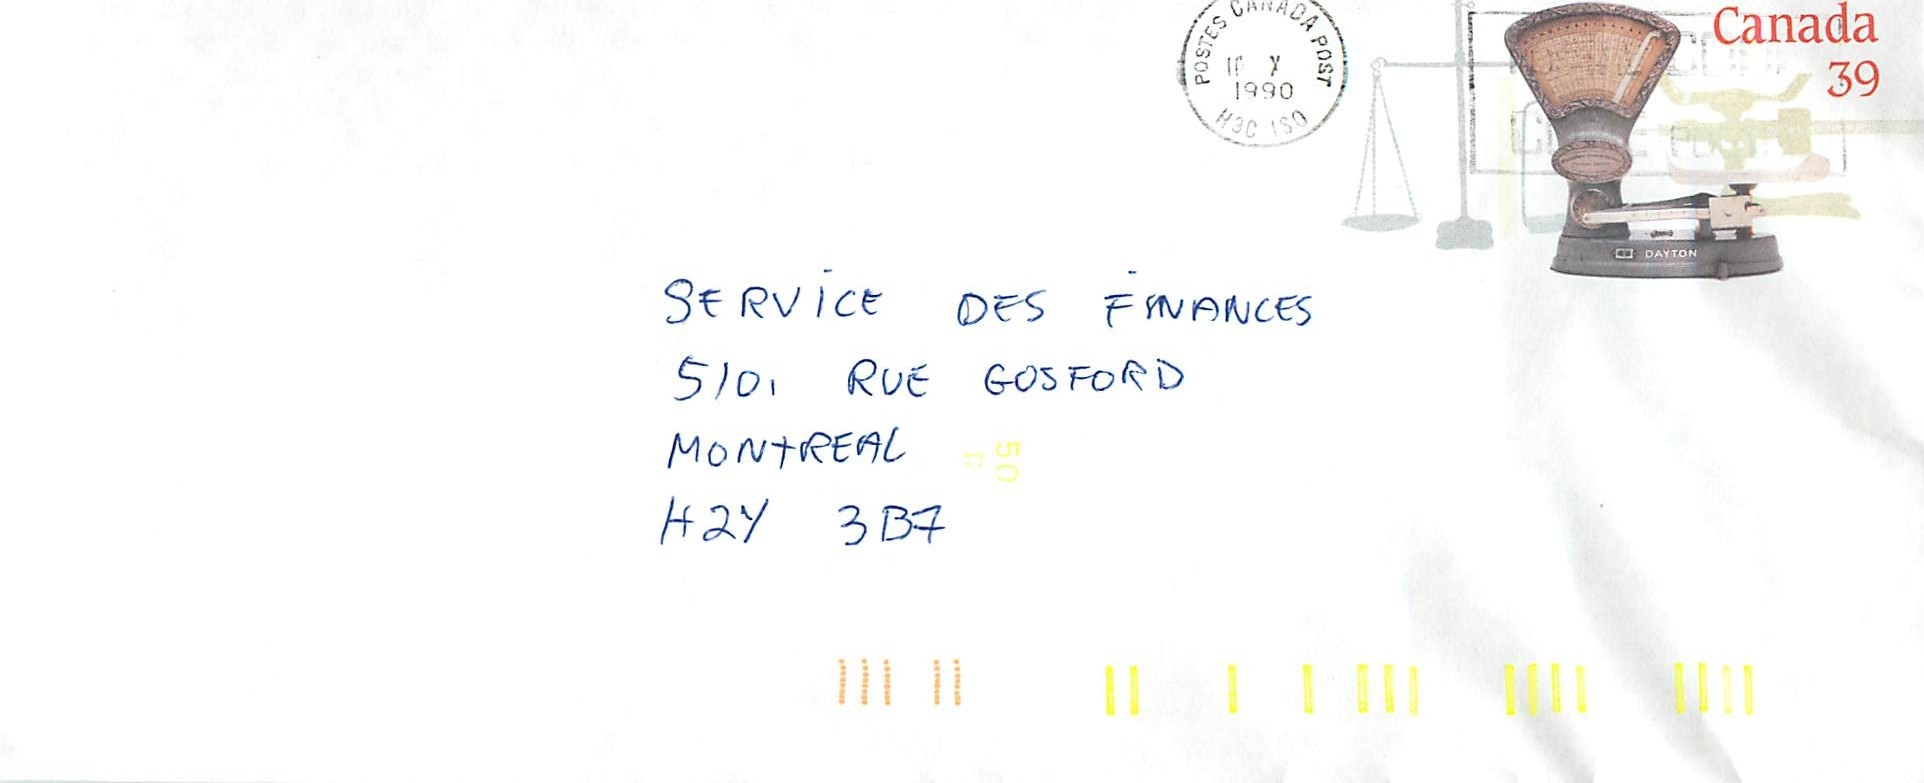 POSTES CANADA POST
1990
H3C 1S0
Canada
39
DAYTON
SERVICE DES FINANCES
510, RUE GOSFORD
MONTREAL
50
H2Y 3B7